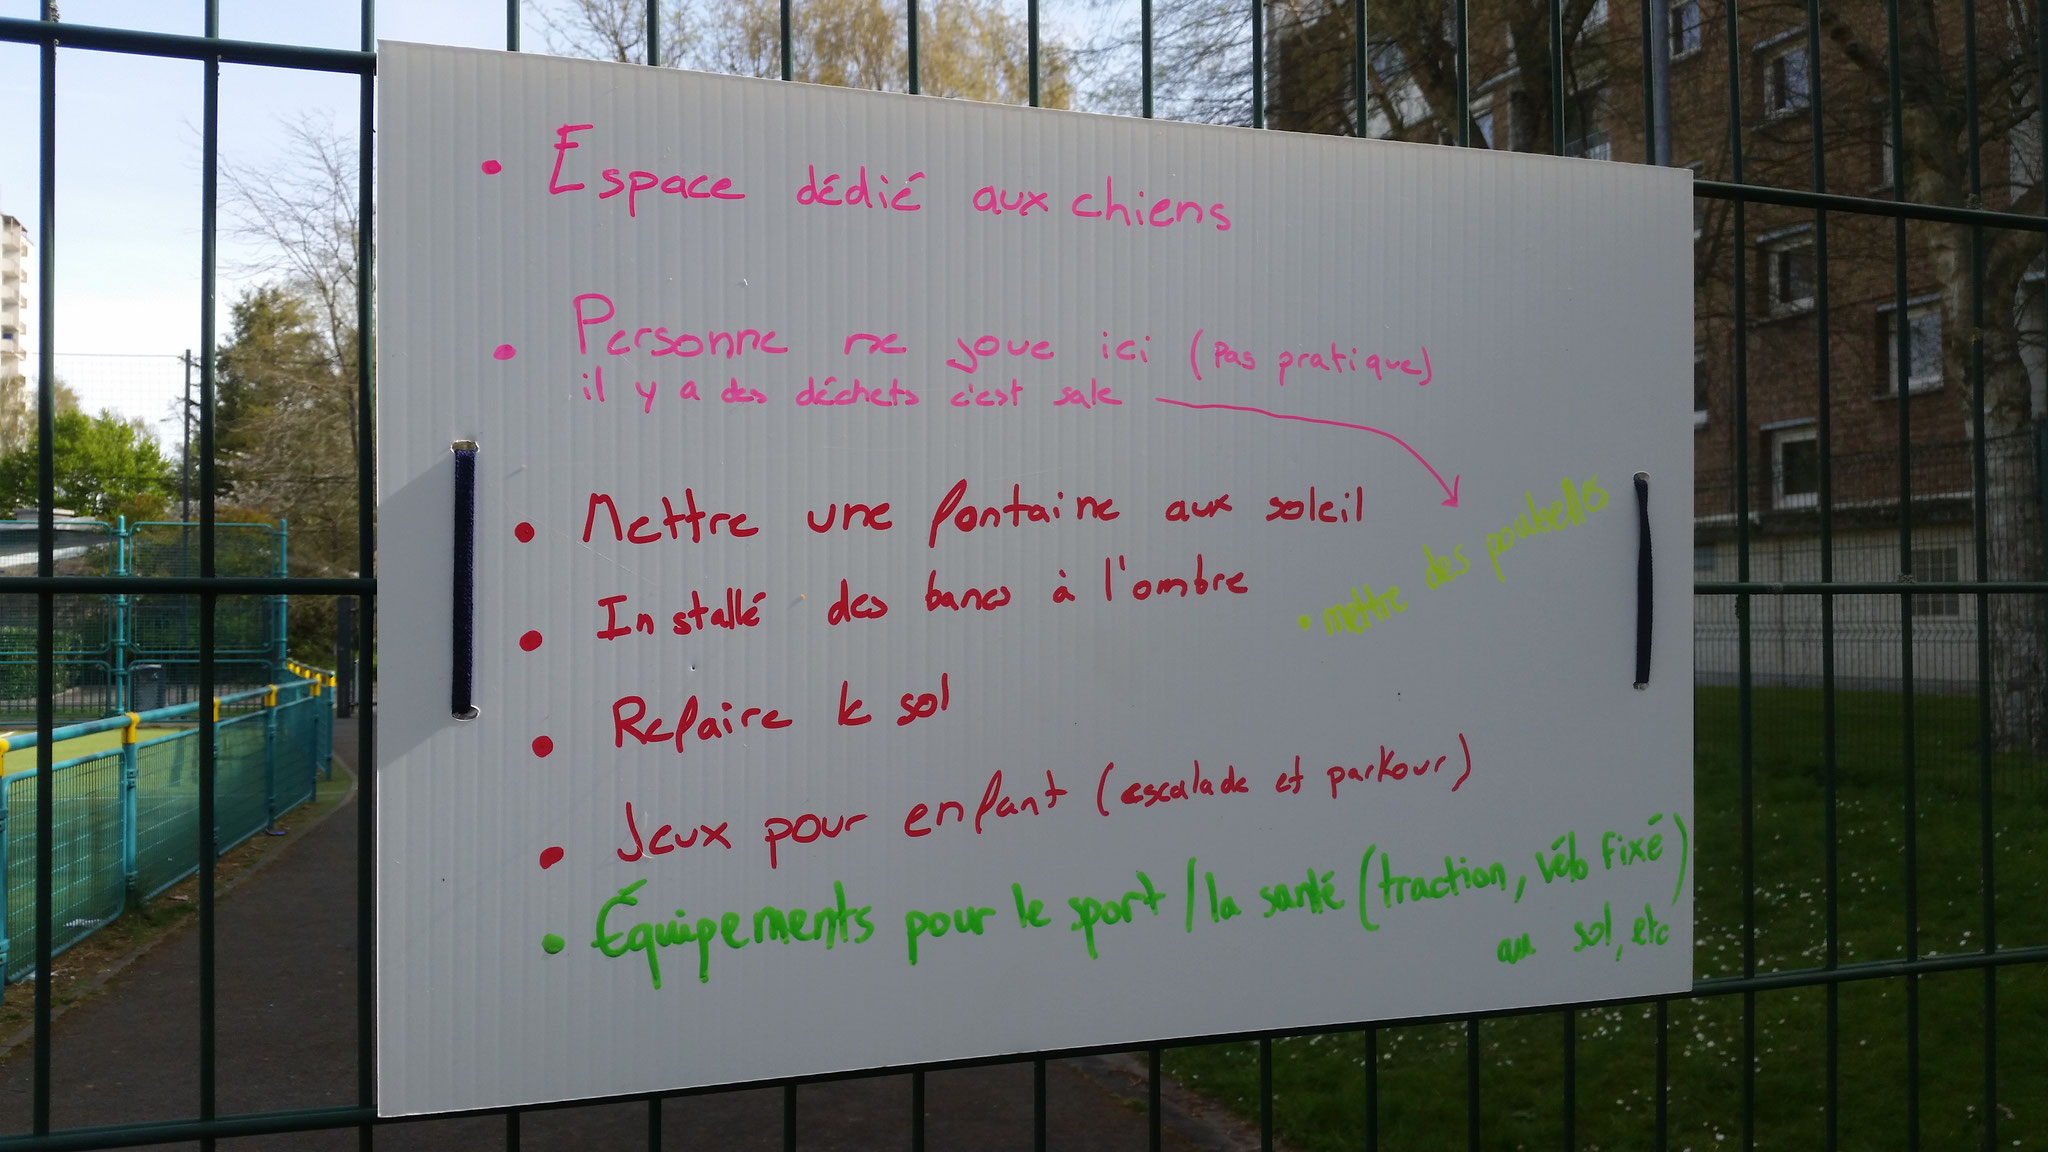 • Espace dédié aux chiens
• Personne ne joue ici (pas pratique)
il y a des déchets c'est sale
• Mettre une fontaine aux soleil
• mettre des poubelles
• Installé des bancs à l'ombre
• Refaire le sol
• Jeux pour enfant (escalade et parkour)
• Équipements pour le sport / la santé (traction, vélo fixé)
au sol, etc